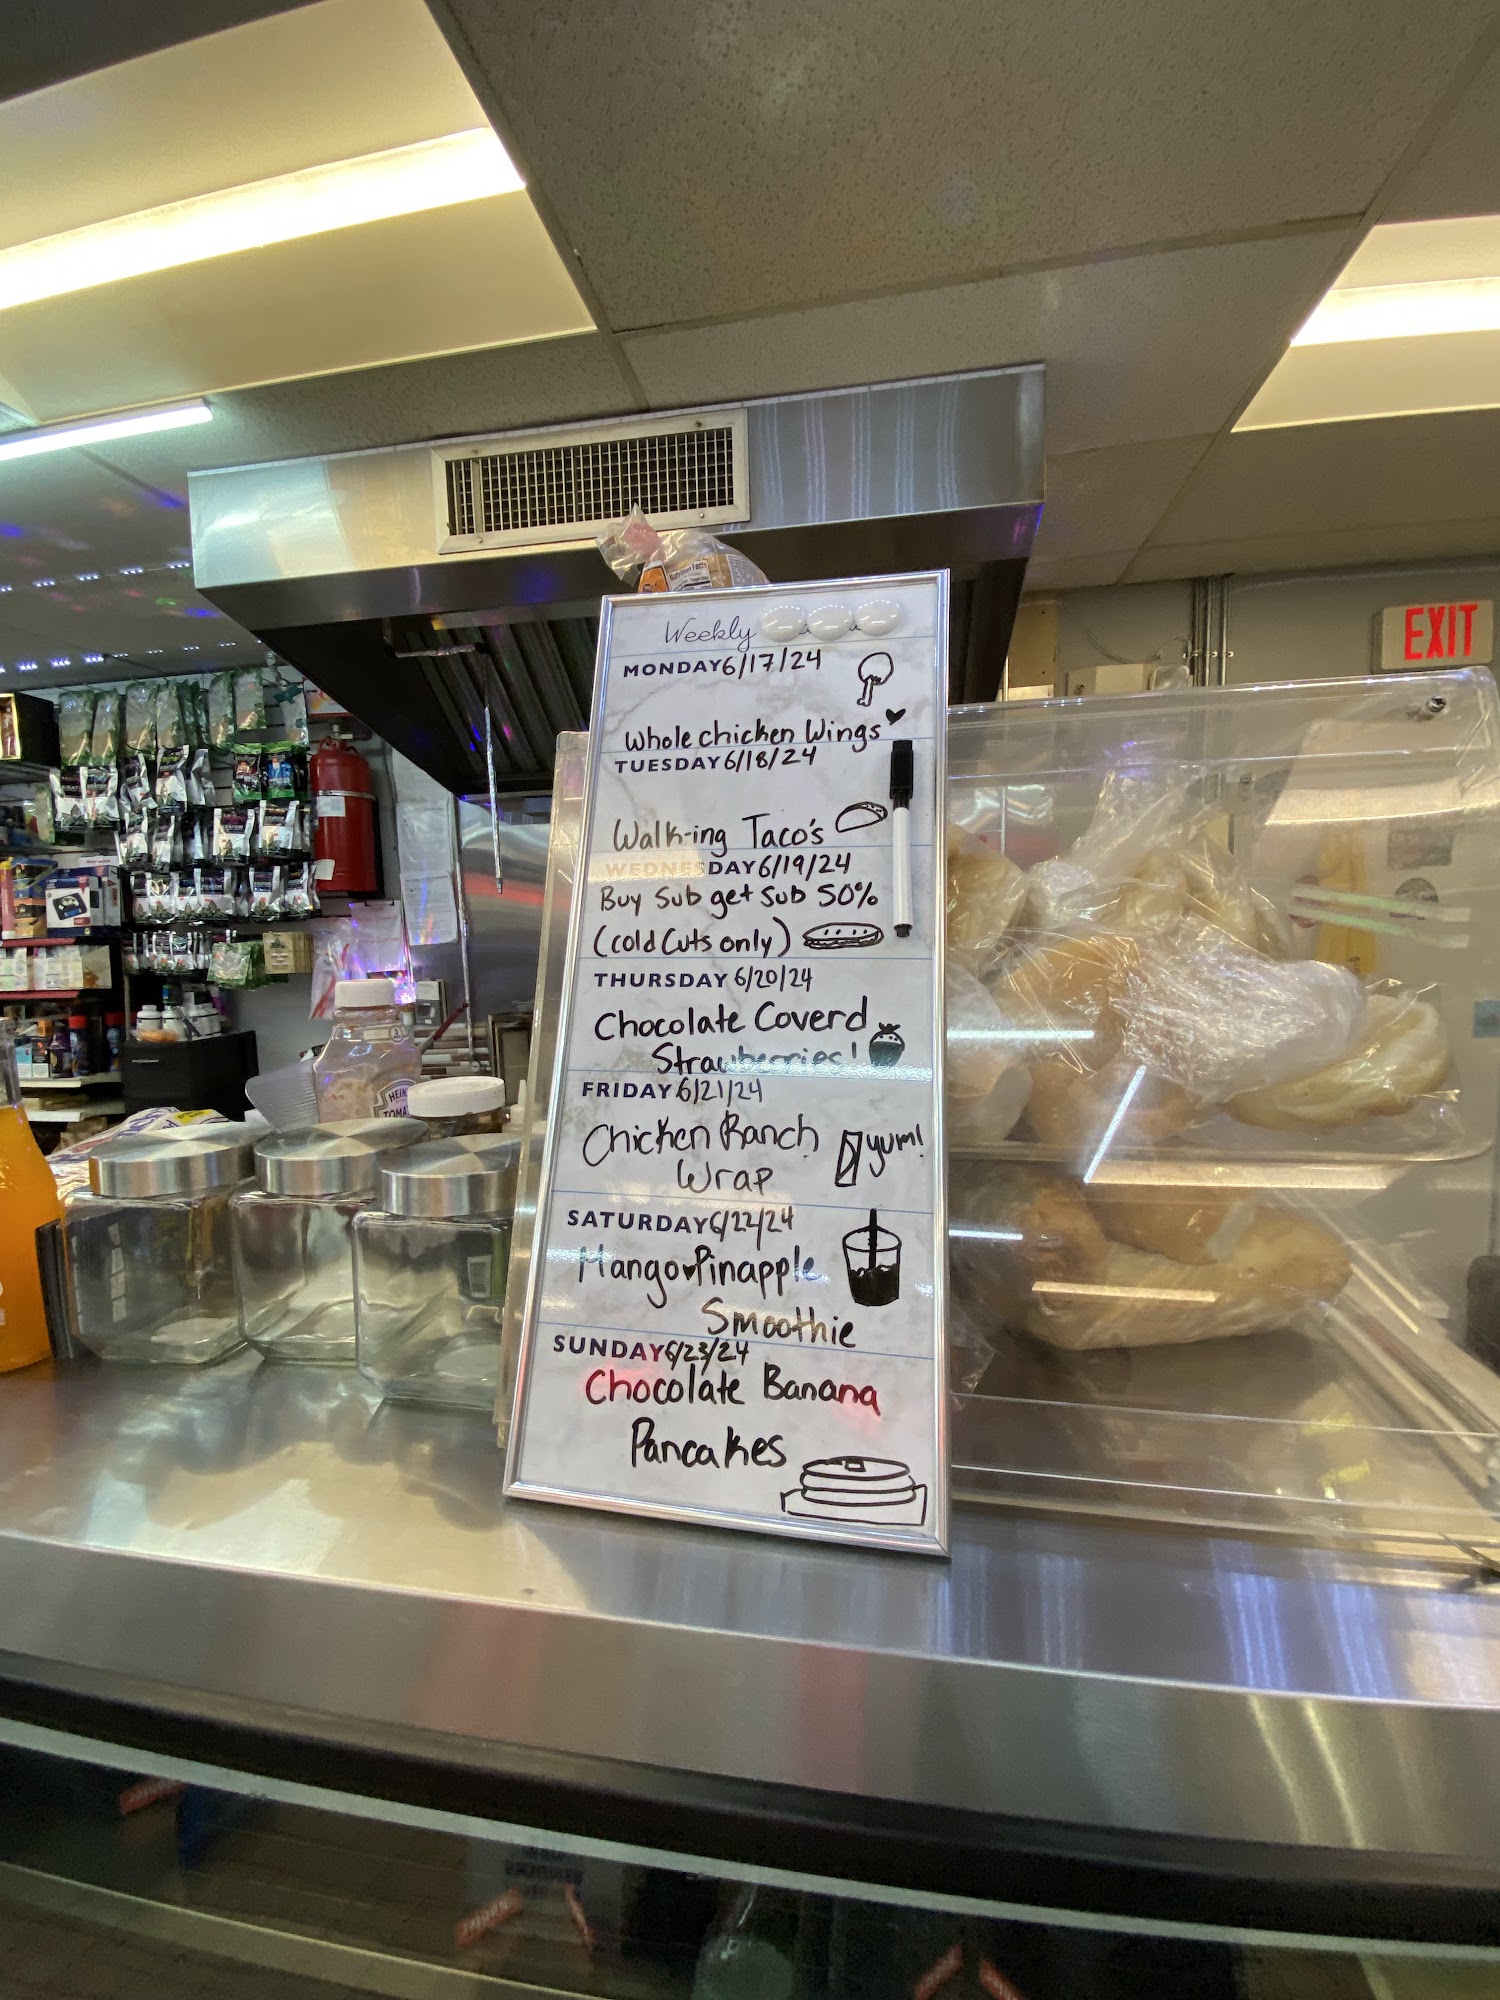 Weekly
MONDAY 6/17/24
Whole chicken Wings
TUESDAY 6/18/24
Walk-ing Taco's
WEDNESDAY 6/19/24
Buy Sub get Sub 50%
(cold Cuts only)
THURSDAY 6/20/24
Chocolate Coverd
Strawberries!
FRIDAY 6/21/24
Chicken Ranch
Wrap
yum!
SATURDAY 6/22/24
Mango Pinapple
Smoothie
SUNDAY 6/23/24
Chocolate Banana
Pancakes
EXIT
Nutrition Facts
HEINZ